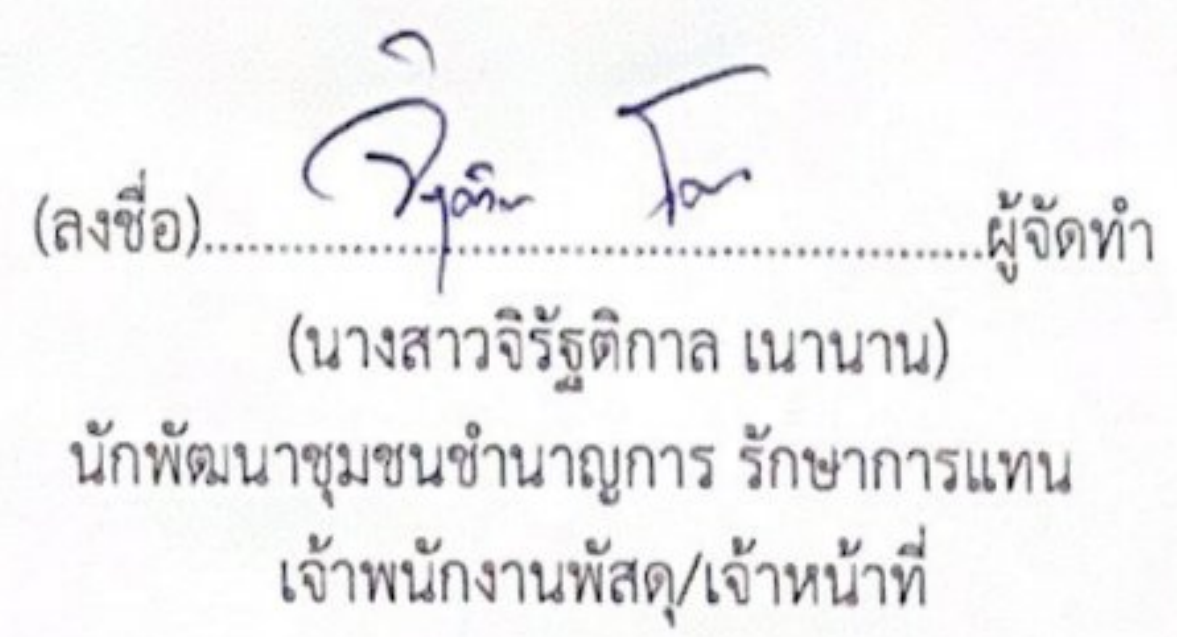 (ลงชื่อ)................................................ผู้จัดทำ
(นางสาวจิรัฐติกาล เนานาน)
นักพัฒนาชุมชนชำนาญการ รักษาการแทน
เจ้าพนักงานพัสดุ/เจ้าหน้าที่